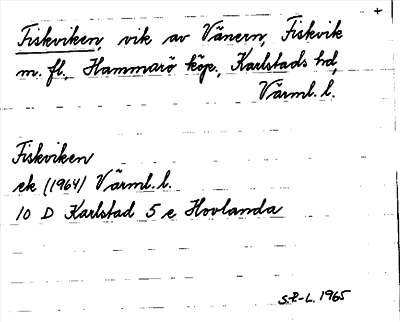 +
Fiskviken, vik av Vänern, Fiskvik
m. fl., Hammarö köp., Karlstads hd,
Värml. l.
Fiskviken
ek (1964) Värml. l.
10 D Karlstad 5 e Hovlanda
S.P-L. 1965